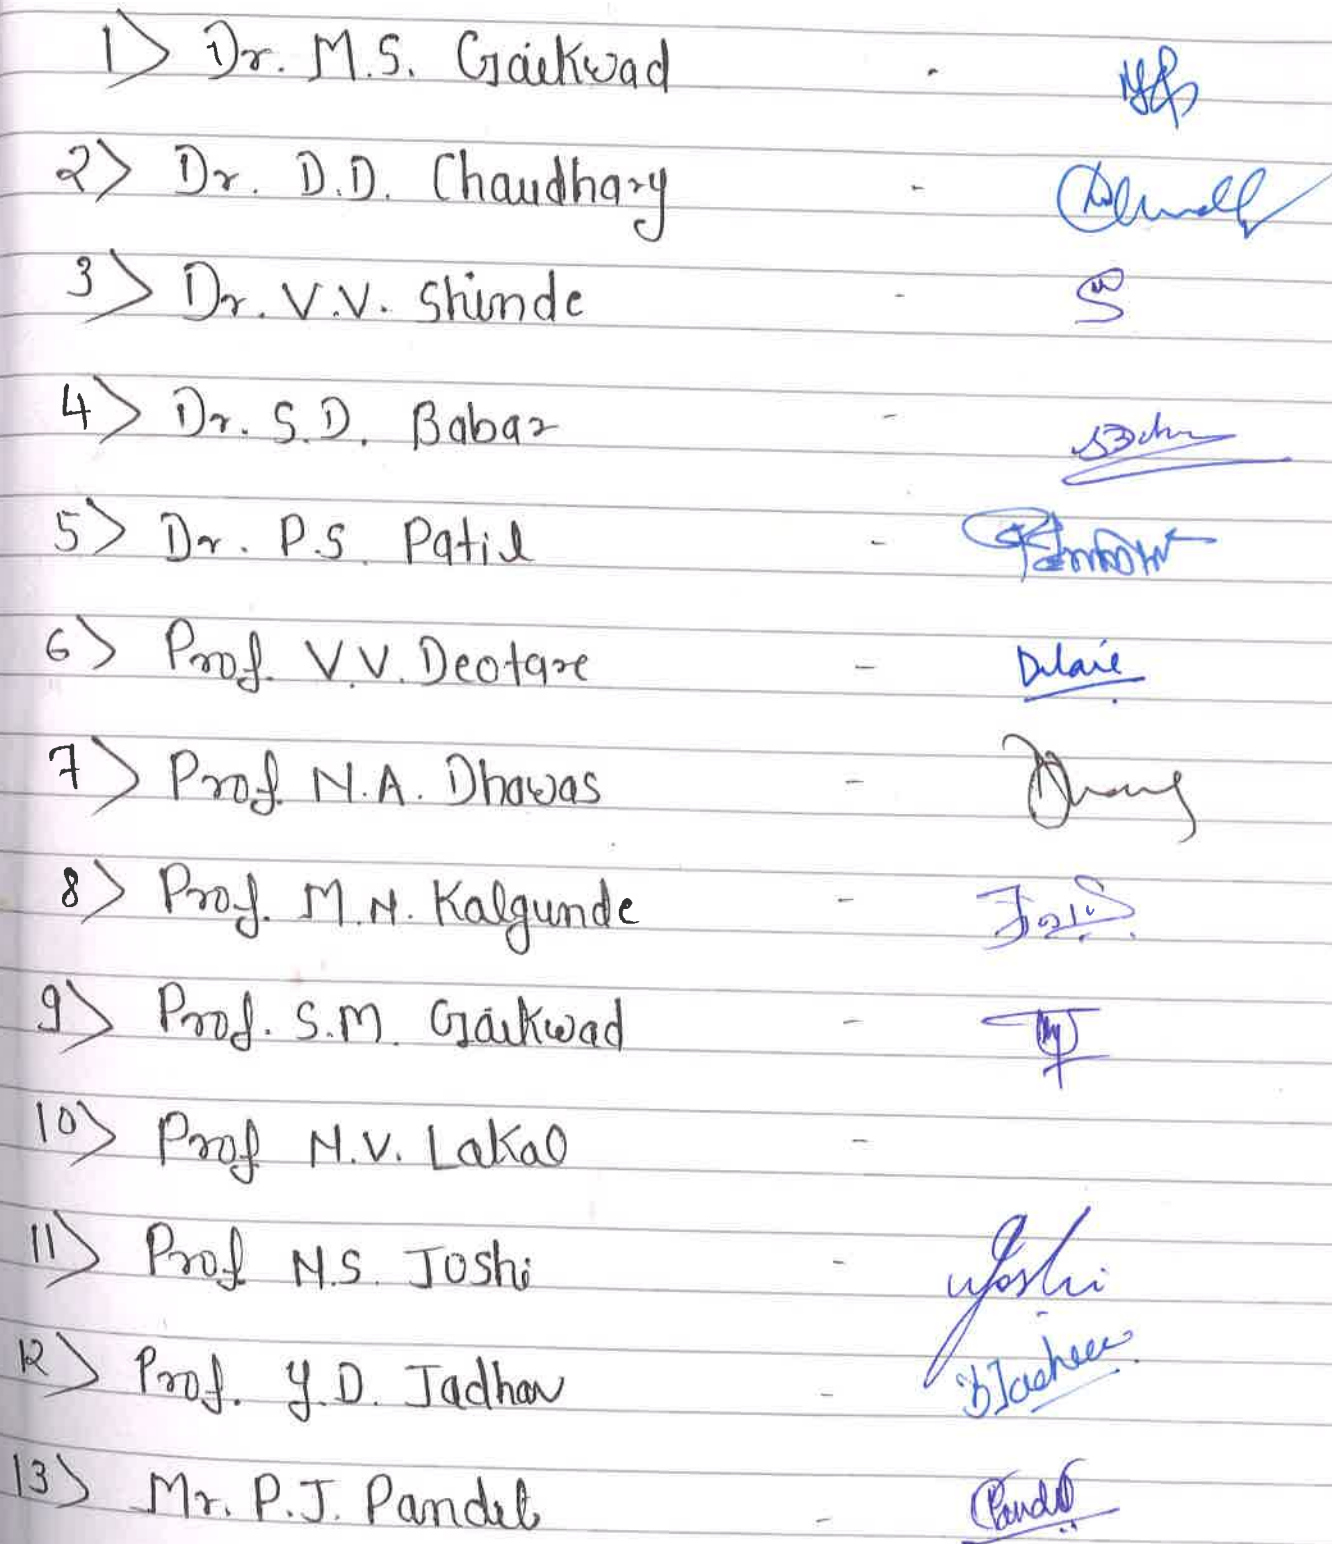 1> Dr. M.S. Gaikwad -
2> Dr. D.D. Chaudhary -
3> Dr. V.V. Shinde -
4> Dr. S.D. Babar -
5> Dr. P.S. Patil -
6> Prof. V.V. Deotare -
7> Prof. N.A. Dhawas -
8> Prof. M.N. Kalgunde -
9> Prof. S.M. Gaikwad -
10> Prof N.V. Lakal -
11> Prof N.S. Joshi - Joshi
12> Prof. Y.D. Jadhav -
13> Mr. P.J. Pandit - Pandit